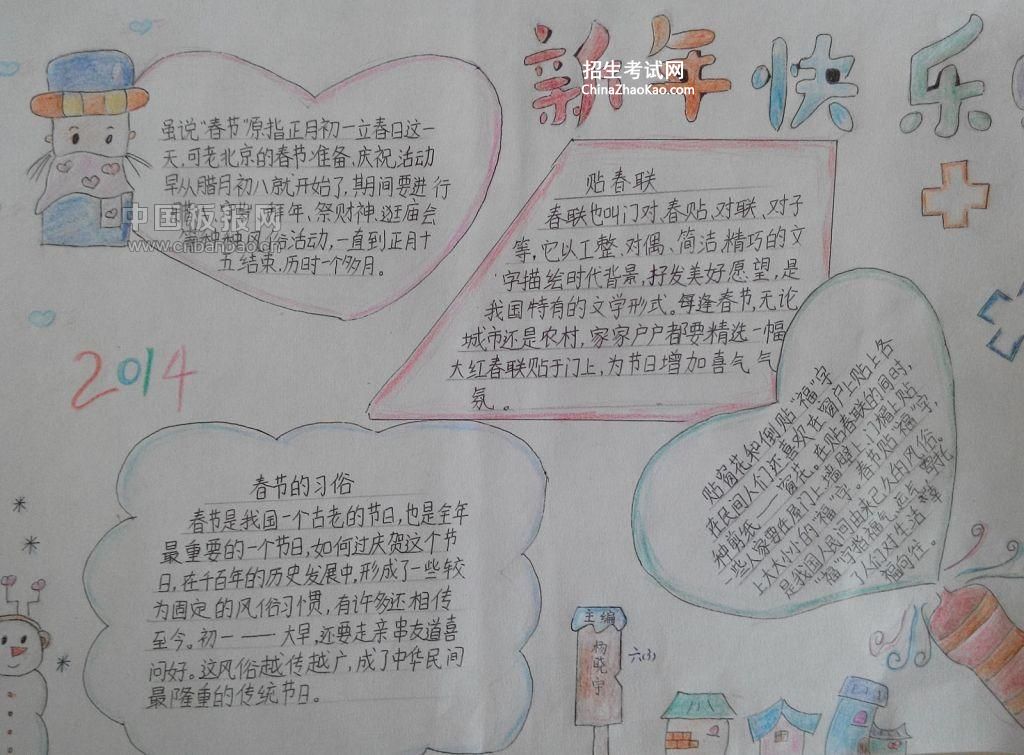 新年快乐
招生考试网
ChinaZhaoKao.com
虽说“春节”原指正月初一立春日这一
天,可老北京的春节准备、庆祝活动
早从腊月初八就开始了,期间要进行
拜年、祭财神、逛庙会
风俗活动,一直到正月十
五结束,历时一个多月。
中国板报网
www.cnbanbao.cn
贴春联
春联也叫门对、春贴、对联、对子
等,它以工整、对偶、简洁、精巧的文
字描绘时代背景,抒发美好愿望,是
我国特有的文学形式。每逢春节,无论
城市还是农村,家家户户都要精选一幅
大红春联贴于门上,为节日增加喜气气
氛。
2014
贴窗花和倒贴“福”字
在民间人们还喜欢在窗户上贴上各
种剪纸——窗花。在贴春联的同时,
一些人家要在屋门上、墙壁上、门楣上贴
上大大小小的“福”字。春节贴“福”字,
是我国人民间由来已久的风俗。
“福”字指福气、运气,寄托
了人们对生活
福向往。
春节的习俗
春节是我国一个古老的节日,也是全年
最重要的一个节日,如何过庆贺这个节
日,在千百年的历史发展中,形成了一些较
为固定的风俗习惯,有许多还相传
至今。初一——大早,还要走亲串友道喜
问好。这风俗越传越广,成了中华民间
最隆重的传统节日。
主编
杨晓宇
六(3)